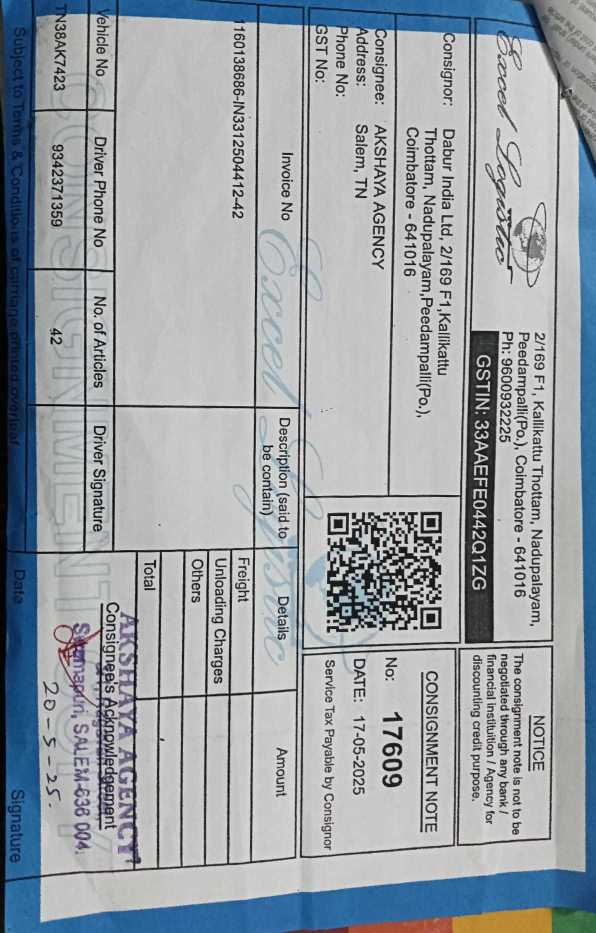 Excel Logistic
2/169 F1, Kallikattu Thottam, Nadupalayam,
Peedampalli(Po.), Coimbatore - 641016
Ph: 9600932225
GSTIN: 33AAEFE0442Q1ZG
NOTICE
The consignment note is not to be
negotiated through any bank /
financial instituition / Agency for
discounting credit purpose.
Consignor: Dabur India Ltd, 2/169 F1,Kallikattu
Thottam, Nadupalayam,Peedampalli(Po.),
Coimbatore - 641016
CONSIGNMENT NOTE
No: 17609
DATE: 17-05-2025
Service Tax Payable by Consignor
Consignee: AKSHAYA AGENCY
Address: Salem, TN
Phone No:
GST No:
Invoice No
Description (said to
be contain)
Details
Amount
1160138686-IN3312504412-42
Freight
Unloading Charges
Others
Total
Excel Logistic
Vehicle No
Driver Phone No
No. of Articles
Driver Signature
TN38AK7423
9342371359
42
AKSHAYA AGENCY
Consignee's Acknowledgement
SALEM-636 004.
20-5-25.
Subject to Terms & Conditions of carriage printed overleaf
Date
Signature